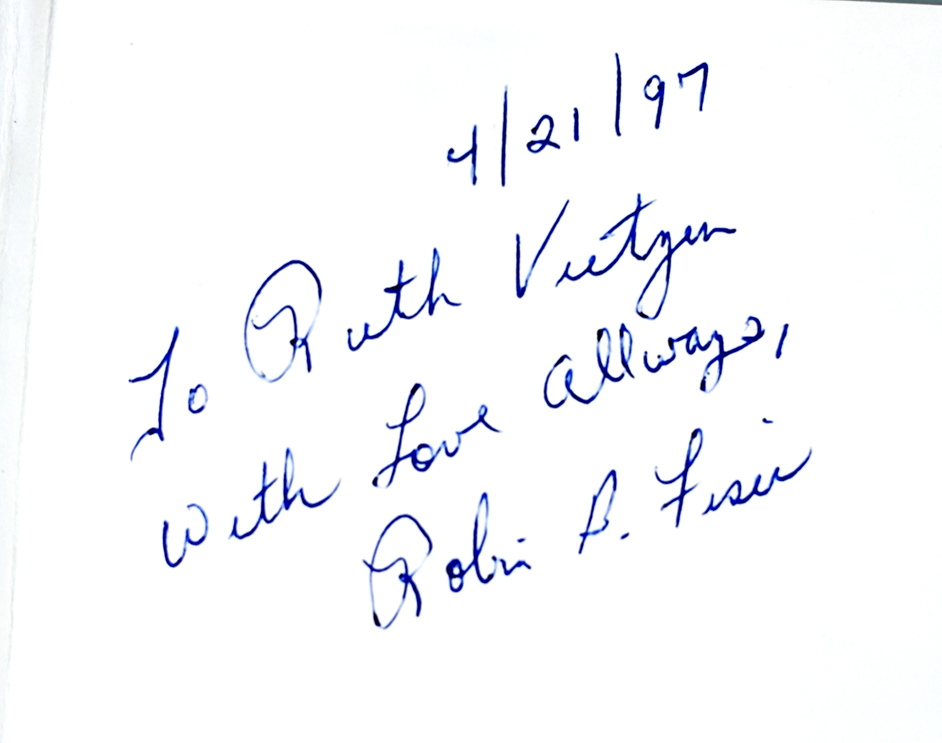 4/21/97
To Ruth Vietzen
With Love Allways,
Robin B. Fisir